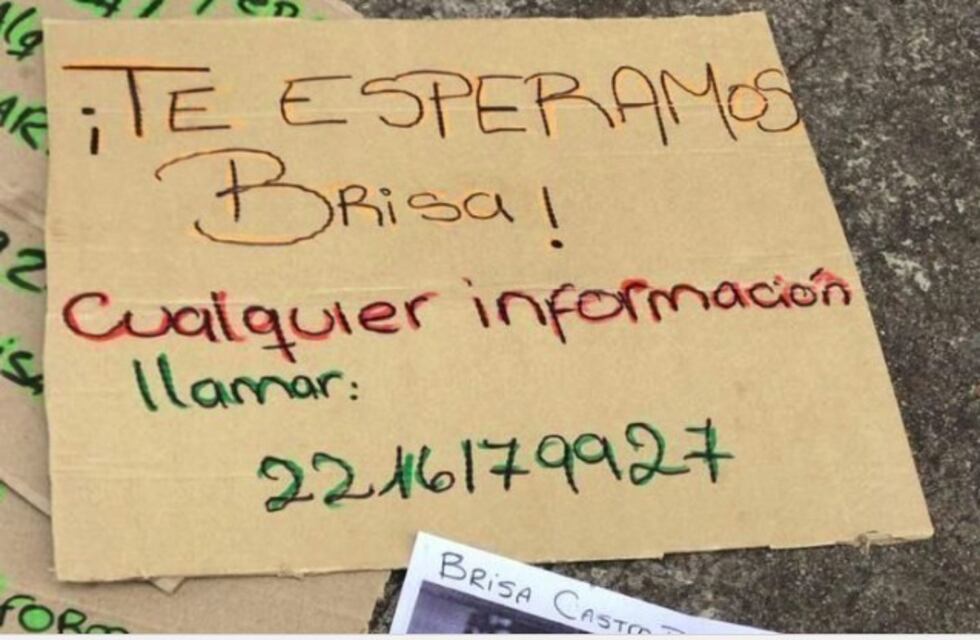 ¡TE ESPERAMOS
BRisa!
Cualquier información
llamar:
2216179927
BRiSA CASTRO